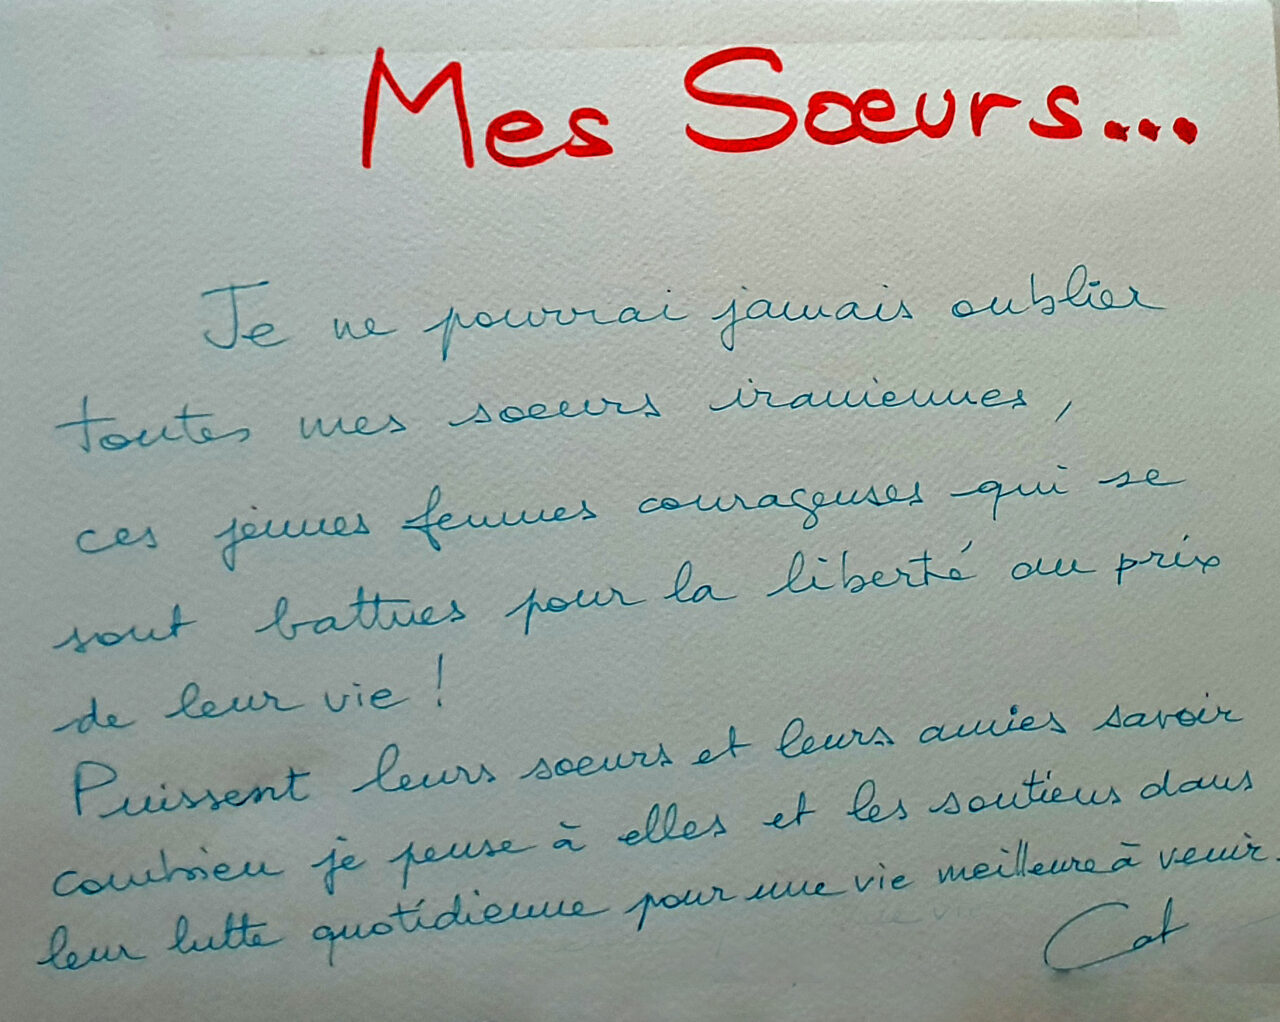 Mes Sœurs...
Je ne pourrai jamais oublier
toutes mes soeurs iraniennes,
ces jeunes femmes courageuses qui se
sont battues pour la liberté au prix
de leur vie !
Puissent leurs soeurs et leurs amies savoir
combien je pense à elles et les soutiens dans
leur lutte quotidienne pour une vie meilleure à venir.
Cat